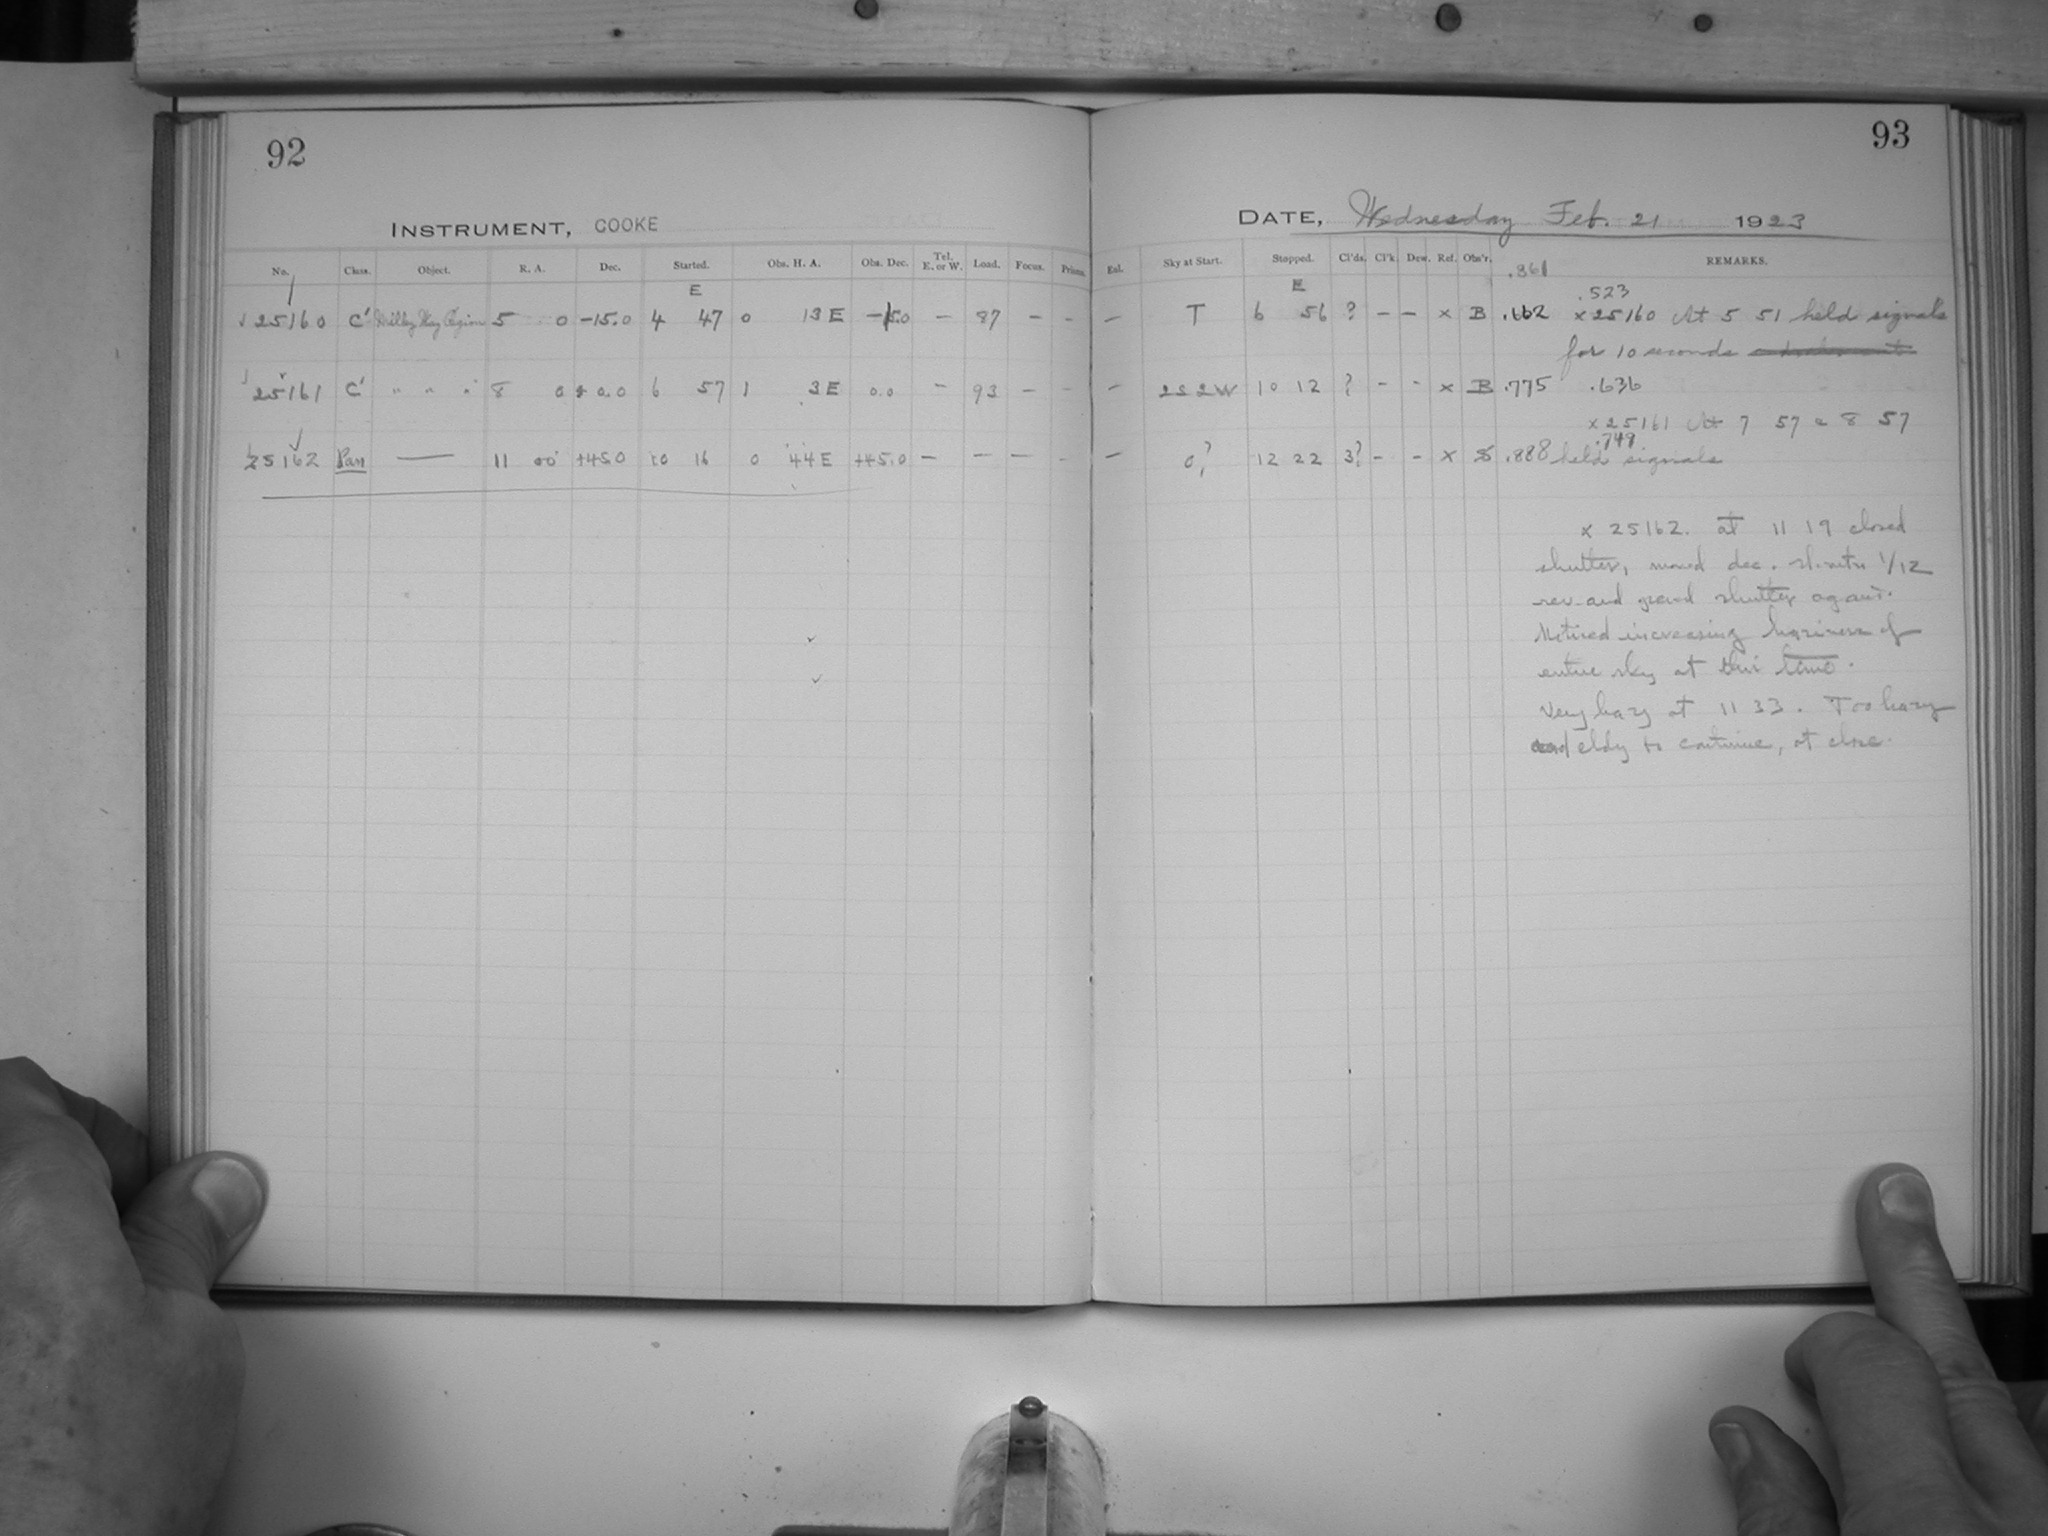 92
INSTRUMENT, COOKE
No. Class. Object. R. A. Dec. Started. Obs. H. A. Obs. Dec. Tel. E. or W. Load. Focus. Prisms.
E
25160 C' Milky Way Region 5 0 -15.0 4 47 0 13 E -15.0 - 87 - -
25161 C' " " " 8 0 0.0 6 57 1 3 E 0.0 - 93 - -
25162 Pan — 11 00 +45.0 10 16 0 44 E +45.0 - - - -
93
DATE, Wednesday Feb. 21 1923
Exl. Sky at Start. Stopped. Cl'ds. Cl'k. Dew. Ref. Obs'r. REMARKS.
.361
E .523
- T 6 56 ? - - x B .162 x 25160 At 5 51 held signals
for 10 seconds
- 2S 2W 10 12 ? - - x B .775 .636
x 25161 At 7 57 & 8 57
.749
- 0? 12 22 3? - - x S .888 held signals
x 25162. at 11 19 closed
shutter, moved dec. 1/12
rev. and shutter again.
Noticed increasing haziness of
entire sky at this time.
Very hazy at 11 33. Too hazy
and cldy to continue, at close.